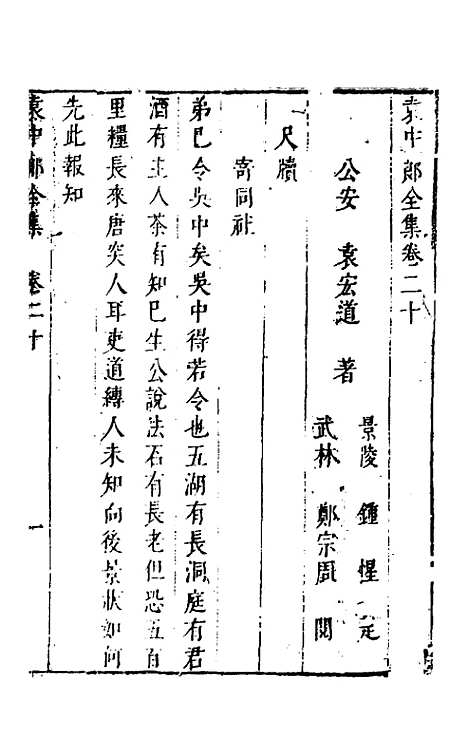 袁中郎全集卷二十
公安 袁宏道 著
景陵 鍾惺 定
武林 鄭宗周 閱
尺牘
寄同社
弟已令吳中矣吳中得若令也五湖有長洞庭有君
酒有主人茶有知已生公說法石有長老但恐五百
里糧長來唐突人耳吏道縛人未知向後景狀如何
先此報知
袁中郎全集 卷二十 一